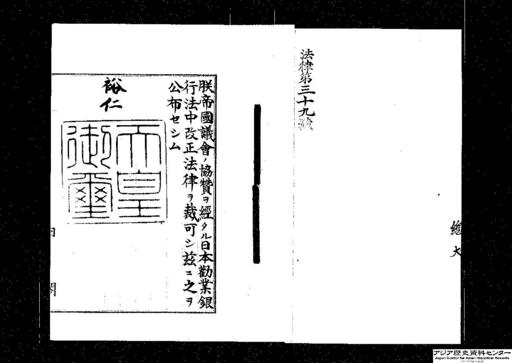 法律第三十九號
總大
朕帝國議會ノ協贊ヲ經タル日本勸業銀
行法中改正法律ヲ裁可シ茲ニ之ヲ
公布セシム
裕仁
天皇
御璽
内閣
アジア歴史資料センター
Japan Center for Asian Historical Records